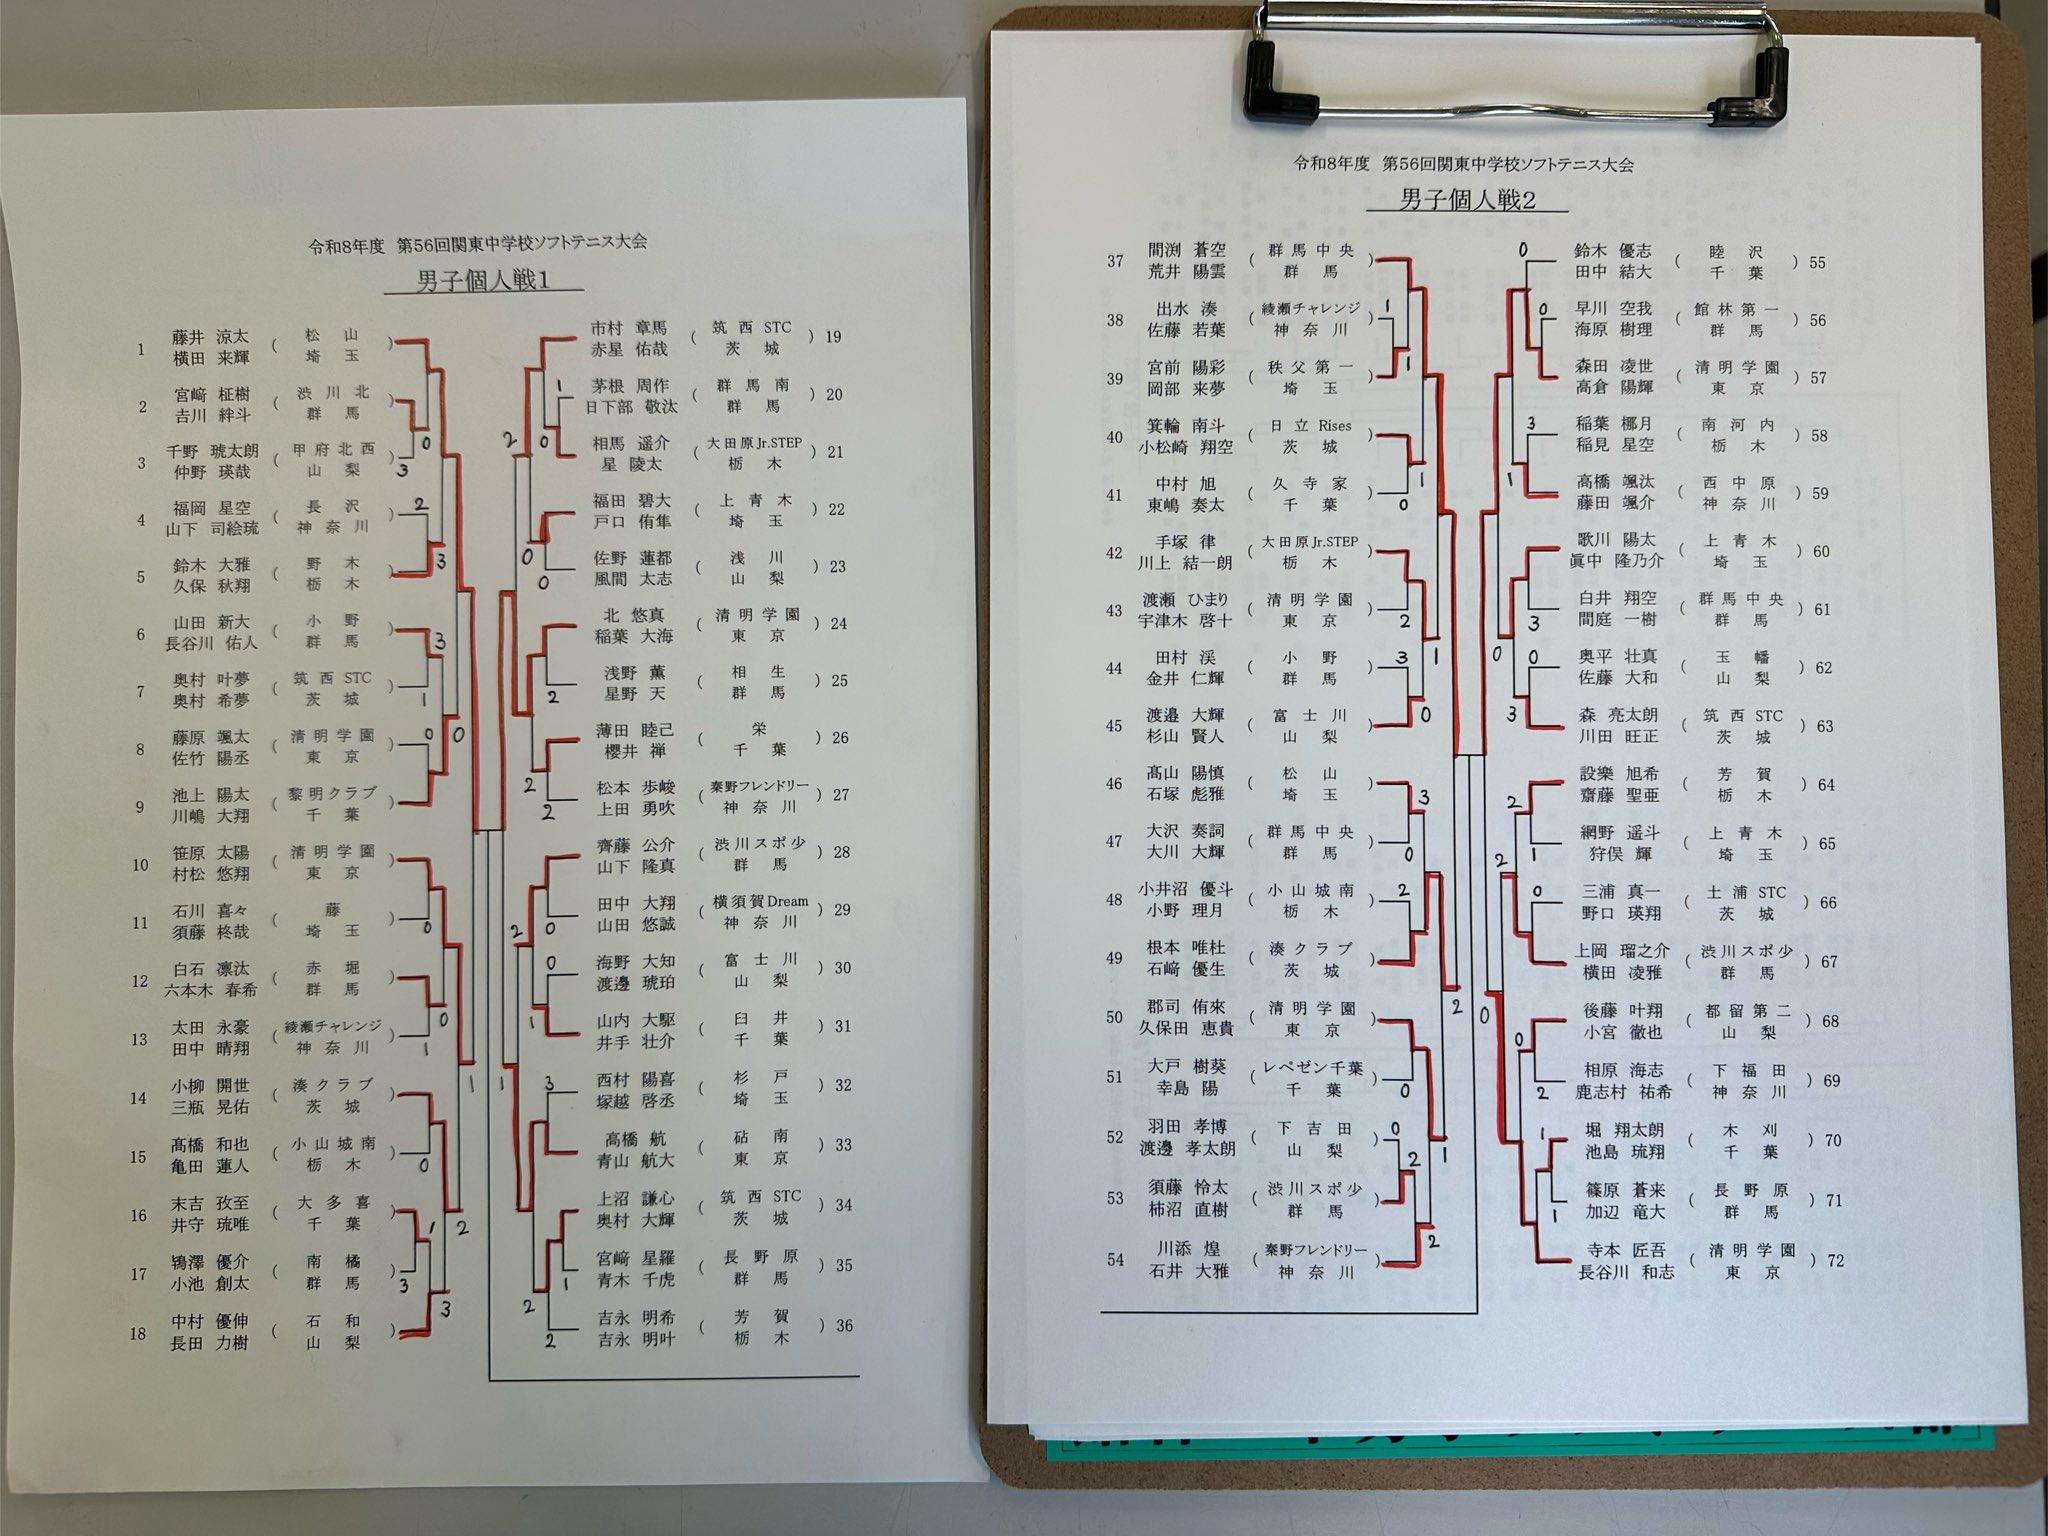 令和8年度 第56回関東中学校ソフトテニス大会
男子個人戦1
1 藤井 涼太 横田 来輝 ( 松山 埼玉 )
2 宮﨑 柾樹 吉川 絆斗 ( 渋川北 群馬 )
3 千野 琥太朗 仲野 瑛哉 ( 甲府北西 山梨 ) 3
4 福岡 星空 山下 司絵琉 ( 長沢 神奈川 ) 2
5 鈴木 大雅 久保 秋翔 ( 野木 栃木 )
6 山田 新大 長谷川 佑人 ( 小野 群馬 )
7 奥村 叶夢 奥村 希夢 ( 筑西STC 茨城 ) 1
8 藤原 颯太 佐竹 陽丞 ( 清明学園 東京 ) 0
9 池上 陽太 川嶋 大翔 ( 黎明クラブ 千葉 )
10 笹原 太陽 村松 悠翔 ( 清明学園 東京 )
11 石川 喜々 須藤 柊哉 ( 藤 埼玉 ) 0
12 白石 凛汰 六本木 春希 ( 赤堀 群馬 )
13 太田 永豪 田中 晴翔 ( 綾瀬チャレンジ 神奈川 ) 1
14 小柳 開世 三瓶 晃佑 ( 湊クラブ 茨城 )
15 髙橋 和也 亀田 蓮人 ( 小山城南 栃木 ) 0
16 末吉 孜至 井守 琉唯 ( 大多喜 千葉 )
17 鴇澤 優介 小池 創太 ( 南橘 群馬 ) 3
18 中村 優伸 長田 力樹 ( 石和 山梨 )
市村 章馬 赤星 佑哉 ( 筑西STC 茨城 ) 19
1 茅根 周作 日下部 敬汰 ( 群馬南 群馬 ) 20
相馬 遥介 星 陵太 ( 大田原Jr.STEP 栃木 ) 21
福田 碧大 戸口 侑隼 ( 上青木 埼玉 ) 22
0 佐野 蓮都 風間 太志 ( 浅川 山梨 ) 23
北 悠真 稲葉 大海 ( 清明学園 東京 ) 24
2 浅野 薫 星野 天 ( 相生 群馬 ) 25
薄田 睦己 櫻井 禅 ( 栄 千葉 ) 26
2 松本 歩峻 上田 勇吹 ( 秦野フレンドリー 神奈川 ) 27
齊藤 公介 山下 隆真 ( 渋川スポ少 群馬 ) 28
0 田中 大翔 山田 悠誠 ( 横須賀Dream 神奈川 ) 29
0 海野 大知 渡邊 琥珀 ( 富士川 山梨 ) 30
山内 大駆 井手 壮介 ( 臼井 千葉 ) 31
3 西村 陽喜 塚越 啓丞 ( 杉戸 埼玉 ) 32
高橋 航 青山 航大 ( 砧南 東京 ) 33
上沼 謙心 奥村 大輝 ( 筑西STC 茨城 ) 34
1 宮﨑 星羅 青木 千虎 ( 長野原 群馬 ) 35
2 吉永 明希 吉永 明叶 ( 芳賀 栃木 ) 36
令和8年度 第56回関東中学校ソフトテニス大会
男子個人戦2
37 間渕 蒼空 荒井 陽雲 ( 群馬中央 群馬 )
38 出水 湊 佐藤 若葉 ( 綾瀬チャレンジ 神奈川 ) 1
39 宮前 陽彩 岡部 来夢 ( 秩父第一 埼玉 )
40 箕輪 南斗 小松崎 翔空 ( 日立Rises 茨城 )
41 中村 旭 東嶋 奏太 ( 久寺家 千葉 ) 0
42 手塚 律 川上 結一朗 ( 大田原Jr.STEP 栃木 )
43 渡瀬 ひまり 宇津木 啓十 ( 清明学園 東京 ) 2
44 田村 渓 金井 仁輝 ( 小野 群馬 ) 3
45 渡邉 大輝 杉山 賢人 ( 富士川 山梨 )
46 髙山 陽慎 石塚 彪雅 ( 松山 埼玉 )
47 大沢 奏詞 大川 大輝 ( 群馬中央 群馬 ) 0
48 小井沼 優斗 小野 理月 ( 小山城南 栃木 ) 2
49 根本 唯杜 石﨑 優生 ( 湊クラブ 茨城 )
50 郡司 侑來 久保田 恵貴 ( 清明学園 東京 )
51 大戸 樹葵 幸島 陽 ( レペゼン千葉 千葉 ) 0
52 羽田 孝博 渡邊 孝太朗 ( 下吉田 山梨 ) 0
53 須藤 怜太 柿沼 直樹 ( 渋川スポ少 群馬 )
54 川添 煌 石井 大雅 ( 秦野フレンドリー 神奈川 )
0 鈴木 優志 田中 結大 ( 睦沢 千葉 ) 55
0 早川 空我 海原 樹理 ( 館林第一 群馬 ) 56
森田 凌世 高倉 陽輝 ( 清明学園 東京 ) 57
3 稲葉 梛月 稲見 星空 ( 南河内 栃木 ) 58
高橋 颯汰 藤田 颯介 ( 西中原 神奈川 ) 59
歌川 陽太 眞中 隆乃介 ( 上青木 埼玉 ) 60
3 白井 翔空 間庭 一樹 ( 群馬中央 群馬 ) 61
0 奥平 壮真 佐藤 大和 ( 玉幡 山梨 ) 62
森 亮太朗 川田 旺正 ( 筑西STC 茨城 ) 63
設樂 旭希 齋藤 聖亜 ( 芳賀 栃木 ) 64
1 網野 遥斗 狩俣 輝 ( 上青木 埼玉 ) 65
0 三浦 真一 野口 瑛翔 ( 土浦STC 茨城 ) 66
上岡 瑠之介 横田 凌雅 ( 渋川スポ少 群馬 ) 67
後藤 叶翔 小宮 徹也 ( 都留第二 山梨 ) 68
2 相原 海志 鹿志村 祐希 ( 下福田 神奈川 ) 69
堀 翔太朗 池島 琉翔 ( 木刈 千葉 ) 70
1 篠原 蒼来 加辺 竜大 ( 長野原 群馬 ) 71
寺本 匠吾 長谷川 和志 ( 清明学園 東京 ) 72